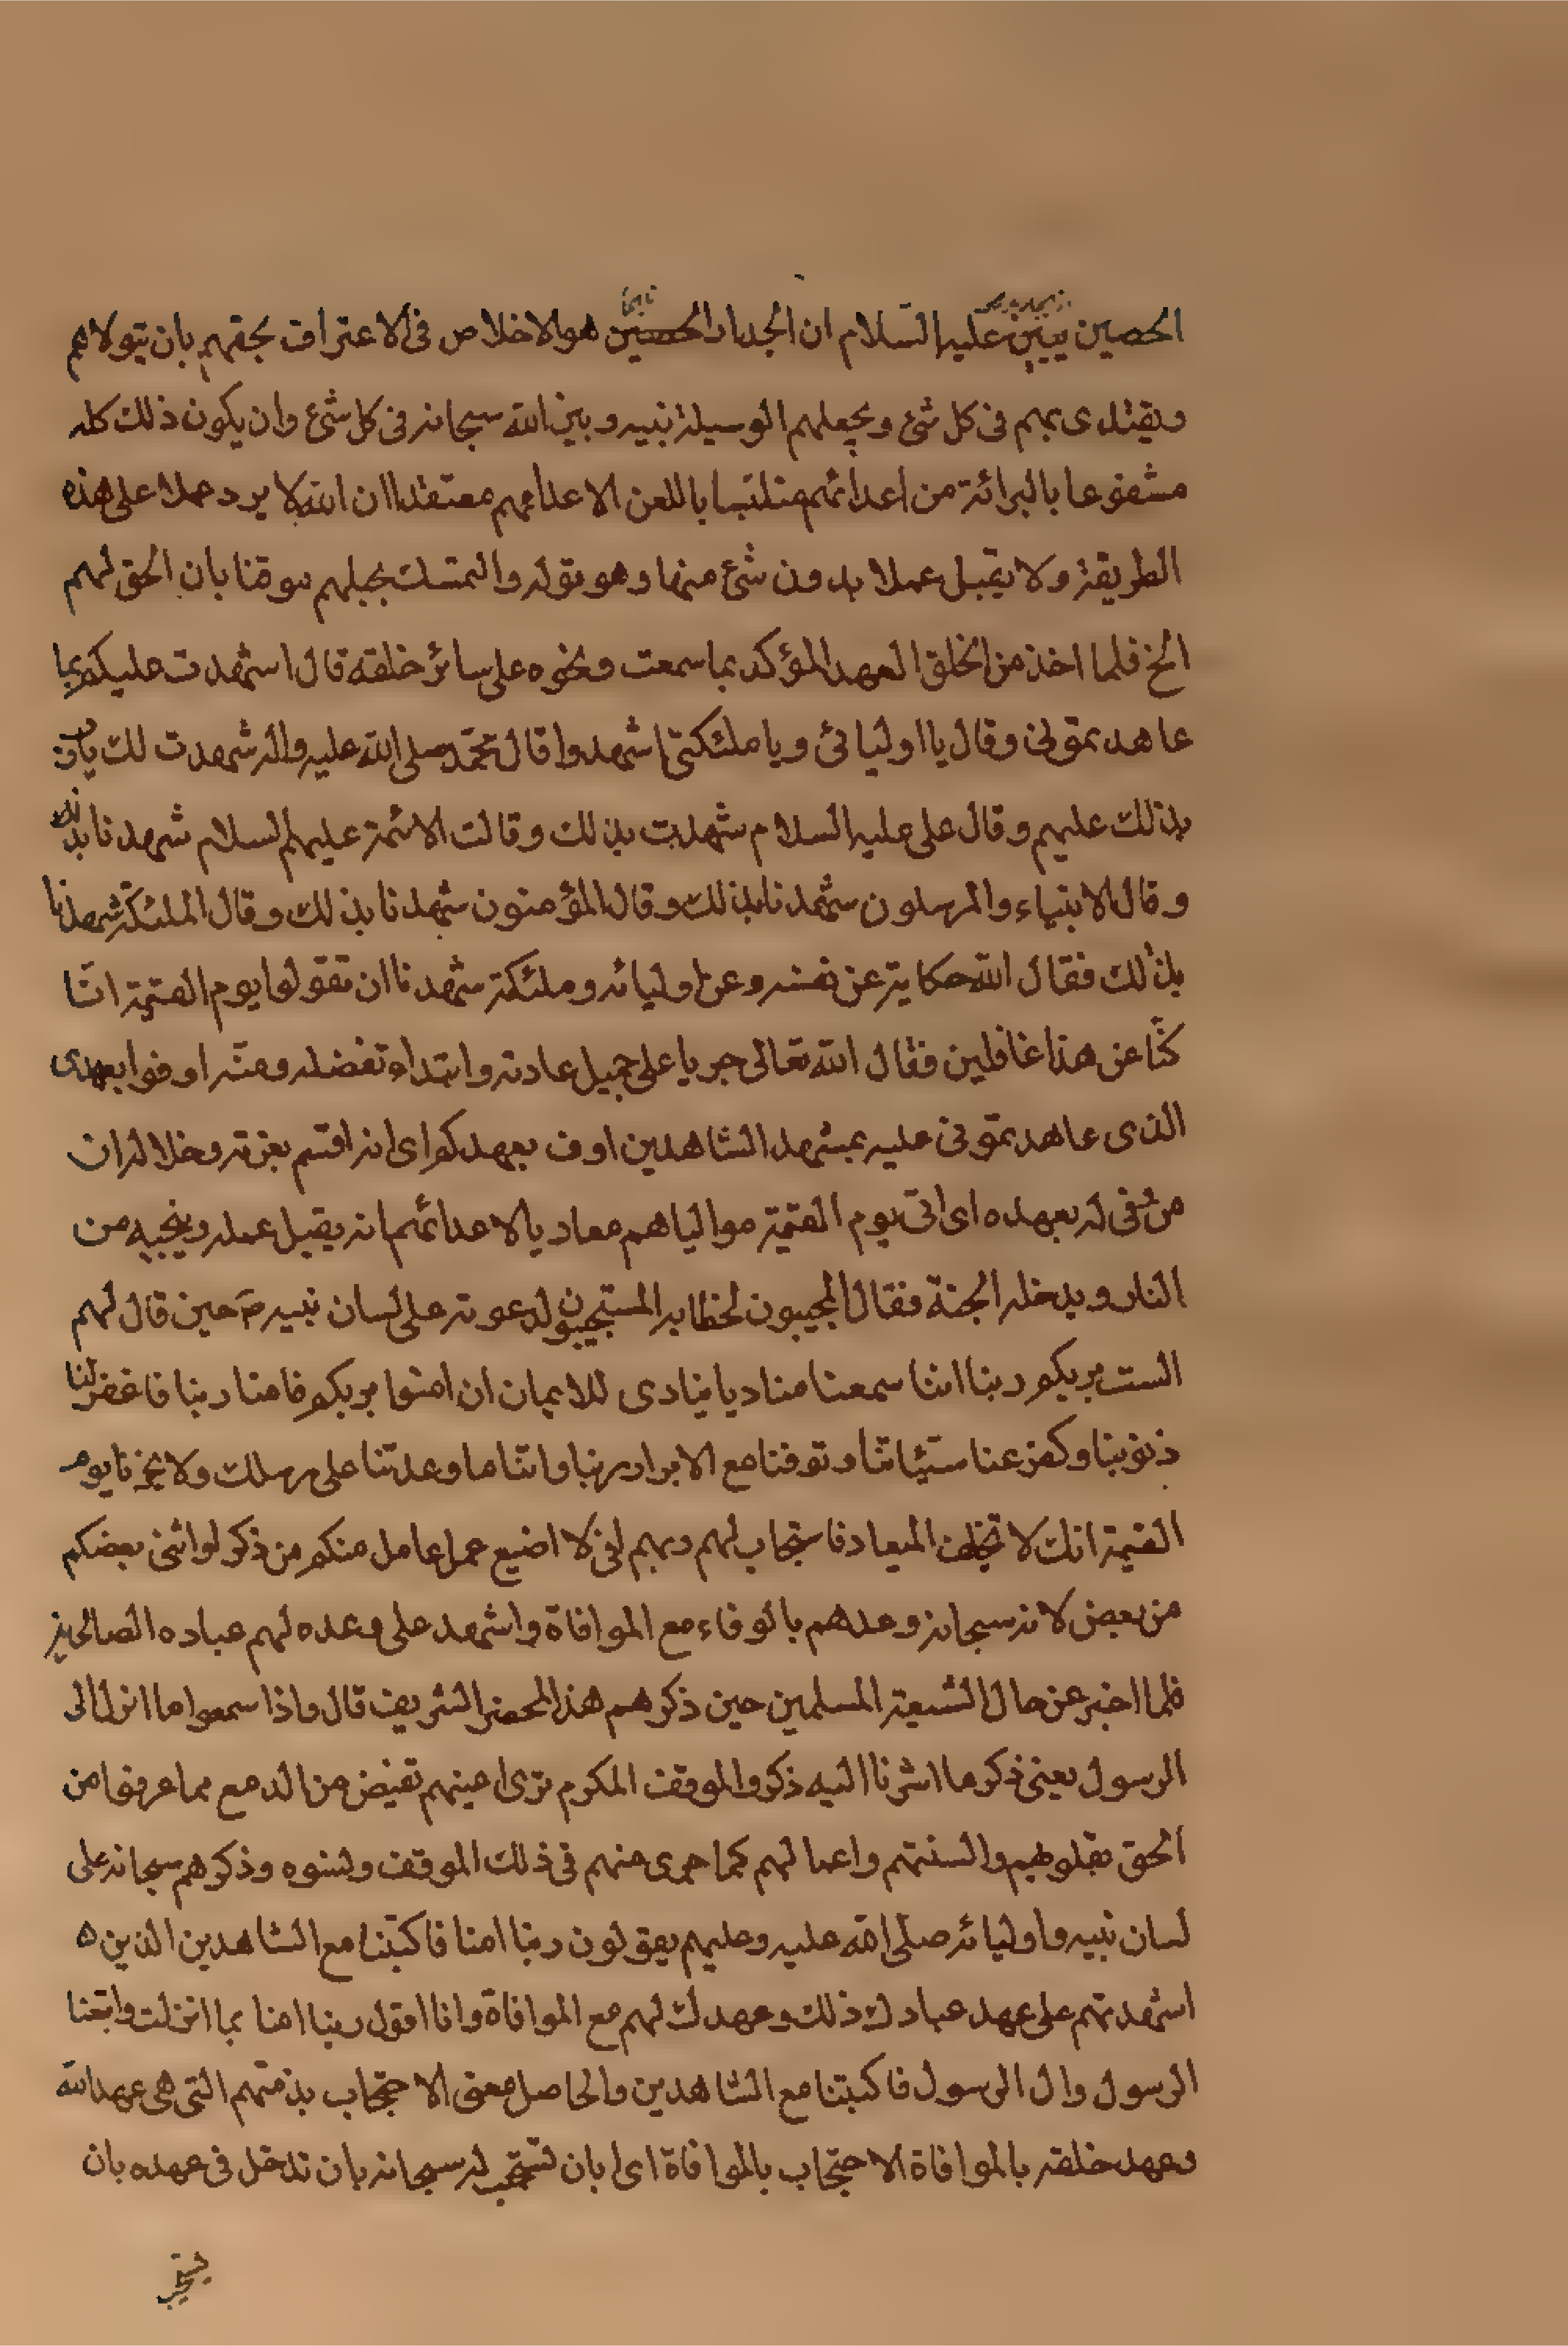 الحصين يبين عليه السلام ان الجدار الحصين هو الاخلاص فى الاعتراف بحقهم بان يتولاهم
ويقتدى بهم فى كل شئ ويجعلهم الوسيلة بينه وبين الله سبحانه فى كل شئ وان يكون ذلك كله
مشفوعا بالبرائة من اعدائهم متلبسا باللعن الاعدائهم معتقدا ان الله لا يرد عملا على هذه
الطريقة ولا يقبل عملا بدون شئ منها وهو قوله والتمسك بحبلهم موقنا بان الحق لهم
الخ فلما اخذ من الخلق العهد المؤكد بما سمعت ونحوه على سائر خلقه قال اشهدت عليكم بما
عاهدتمونى وقال يا اوليائى ويا ملئكتى اشهدوا قال محمد صلى الله عليه واله شهدت لك يا رب
بذلك عليهم وقال على عليه السلام شهدت بذلك وقالت الائمة عليهم السلام شهدنا بذلك
وقال الانبياء والمرسلون شهدنا بذلك وقال المؤمنون شهدنا بذلك وقال الملئكة شهدنا
بذلك فقال الله حكاية عن نفسه وعن اوليائه وملئكته شهدنا ان تقولوا يوم القيمة انا
كنا عن هذا غافلين فقال الله تعالى جريا على جميل عادته وابتداء تفضله ومنه اوفوا بعهدى
الذى عاهدتمونى عليه بمشهد الشاهدين اوف بعهدكم اى انه اقسم بعزته وجلاله ان
من وفى له بعهده اى اتى يوم القيمة مواليا هم معاديا لاعدائهم انه يقبل عمله وينجيه من
النار ويدخله الجنة فقال المجيبون لخطابه المستجيبون لدعوته على لسان نبيه ص حين قال لهم
الست بربكم ربنا اننا سمعنا مناديا ينادى للايمان ان امنوا بربكم فامنا ربنا فاغفر لنا
ذنوبنا وكفر عنا سيئاتنا وتوفنا مع الابرار ربنا واتنا ما وعدتنا على رسلك ولا تخزنا يوم
القيمة انك لا تخلف الميعاد فاستجاب لهم ربهم انى لا اضيع عمل عامل منكم من ذكر او انثى بعضكم
من بعض لانه سبحانه وعدهم بالوفاء مع الموافاة واشهد على وعده لهم عباده الصالحين
فلما اخبر عن حال الشيعة المسلمين حين ذكرهم هذا المحضر الشريف قال واذا سمعوا ما انزل الى
الرسول يعنى ذكر ما اشرنا اليه ذكروا الموقف المكرم ترى اعينهم تفيض من الدمع مما عرفوا من
الحق بقلوبهم والسنتهم واعمالهم كما جرى منهم فى ذلك الموقف ونسوه وذكرهم سبحانه على
لسان نبيه واوليائه صلى الله عليه وعليهم يقولون ربنا امنا فاكتبنا مع الشاهدين الذين
اشهدتهم على عهد عبادك ذلك وعهدك لهم مع الموافاة وانا اقول ربنا امنا بما انزلت واتبعنا
الرسول وال الرسول فاكتبنا مع الشاهدين والحاصل معنى الاحتجاب بذمتهم التى هى عهد الله
وعهد خلقه بالموافاة الاحتجاب بالموافاة اى بان تستجب له سبحانه بان تدخل فى عهده بان